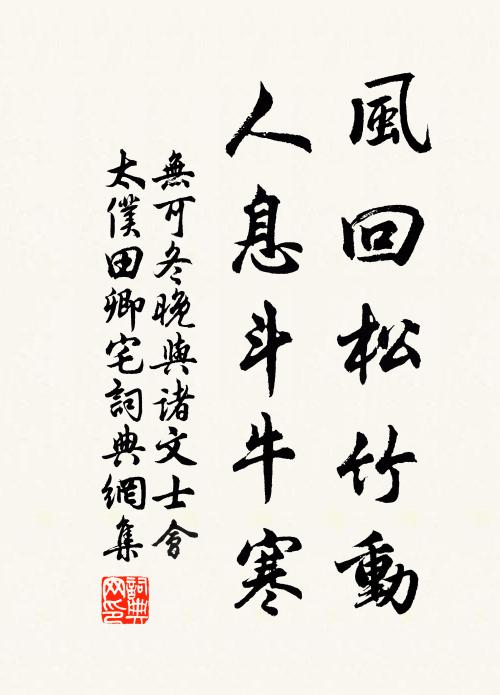 風回松竹動
人息斗牛寒
無可冬晚與諸文士會
太僕田卿宅詞典網集
詞典網印